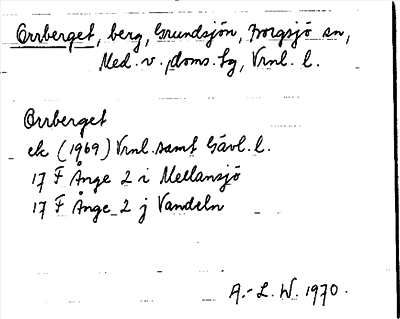 Orrberget, berg, Grundsjön, Borgsjö sn,
Med. v. doms. tg, Vrnl. l.
Orrberget
ek (1969) Vrnl. samt Gävl. l.
17 F Ånge 2 i Mellansjö
17 F Ånge 2 j Vandeln
A.-L. W. 1970.